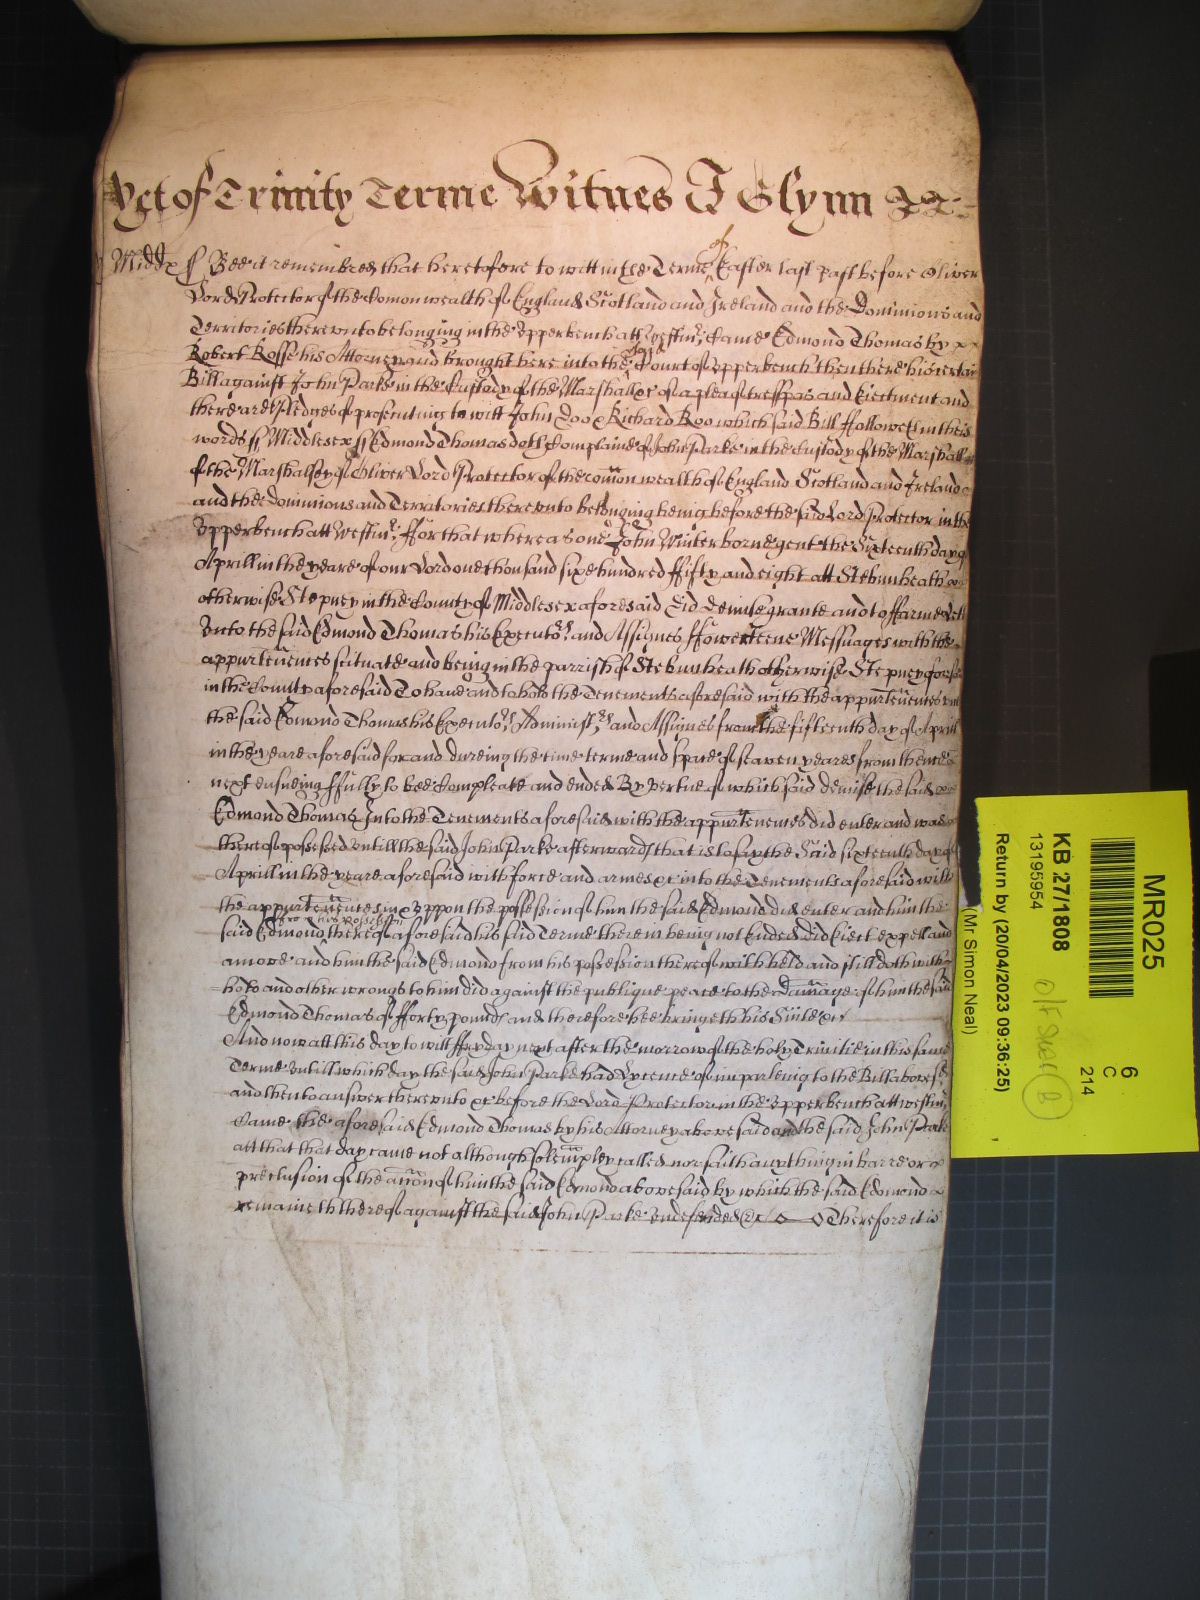 Yet of Trinity Terme Witnes J Glynn
Middx ss Bee it remembred that heretofore to witt in the Terme of Easter last past before Oliver
Lord Protector of the Comonwealth of England Scotland and Ireland and the Dominions and
Territories thereunto belonging in the Vpperbench att Westmr: Came Edmond Thomas by
Robert Rosse his Attorney and brought here into the said Court of Vpperbench then there his certain
Bill against John Parke in the Custody of the Marshall &c of a plea of trespas and Eiectment and
there are Pledges of prosecuting to witt John Doo & Richard Roo which said Bill ffolloweth in these
words ss Middlesex ss Edmond Thomas doth Complaine of John Parke in the Custody of the Marshall
of the Marshalsey of Oliver Lord Protector of the comon wealth of England Scotland and Ireland
and the Dominions and Territories thereunto belonging being before the said Lord Protector in the
Vpperbench att Westmr: ffor that whereas one John Winterborne gent the Sixteenth day of
Aprill in the yeare of our Lord one thousand sixe hundred ffifty and eight att Stebunheath
otherwise Stepney in the County of Middlesex aforesaid did demise grante and to ffarme lett
Vnto the said Edmond Thomas his Executors and Assignes ffowerteene Messuages with the
appurtenences scituate and being in the parrish of Stebunheath otherwise Stepney foresaid
in the County aforesaid To have and to hold the Tenements aforesaid with the appurtenences vnto
the said Edmond Thomas his Executors Administrs and Assignes from the fifteenth day of Aprill
in the yeare aforesaid for and dureing the time terme and space of seaven yeares from thence
next ensueing ffully to bee Compleate and ended By vertue of which said demise the said
Edmond Thomas Into the Tenements aforesaid with the appurtenences did enter and was
thereof possessed Vntill the said John Parke afterwards that is to say the Said sixteenth day of
Aprill in the yeare aforesaid with force and armes &c into the Tenements aforesaid with
the appurtenences in & vppon the possession of him the said Edmond did enter and him the
said Edmond thereof aforesaid his said Terme therein being not Ended did Eiect expell and
amove and him the said Edmond from his possession thereof withheld and still doth with
hold and other wrongs to him did against the publique peace to the Damage of him the said
Edmond Thomas of fforty pounds and therefore hee bringeth his Suite &c
And now att this day to witt ffryday next after the morrow of the holy Trinitie in this same
Terme Vntill which day the said John Parke had Lycence of imparleing to the Bill abovesd
and then to answer thereunto &c before the Lord Protector in the Vpperbench att Westmr:
Came the aforesaid Edmond Thomas by his Attorney abovesaid and the said John Parke
att that that day came not although solempley called nor saith any thing in barre or
preclusion of the accon of him the said Edmond abovesaid by which the said Edmond
remaineth thereof against the said John Parke vndefended &c Therefore it is
MR025
KB 27/1808
13195954
Return by (20/04/2023 09:36:25)
(Mr Simon Neal)
6
C
214
B